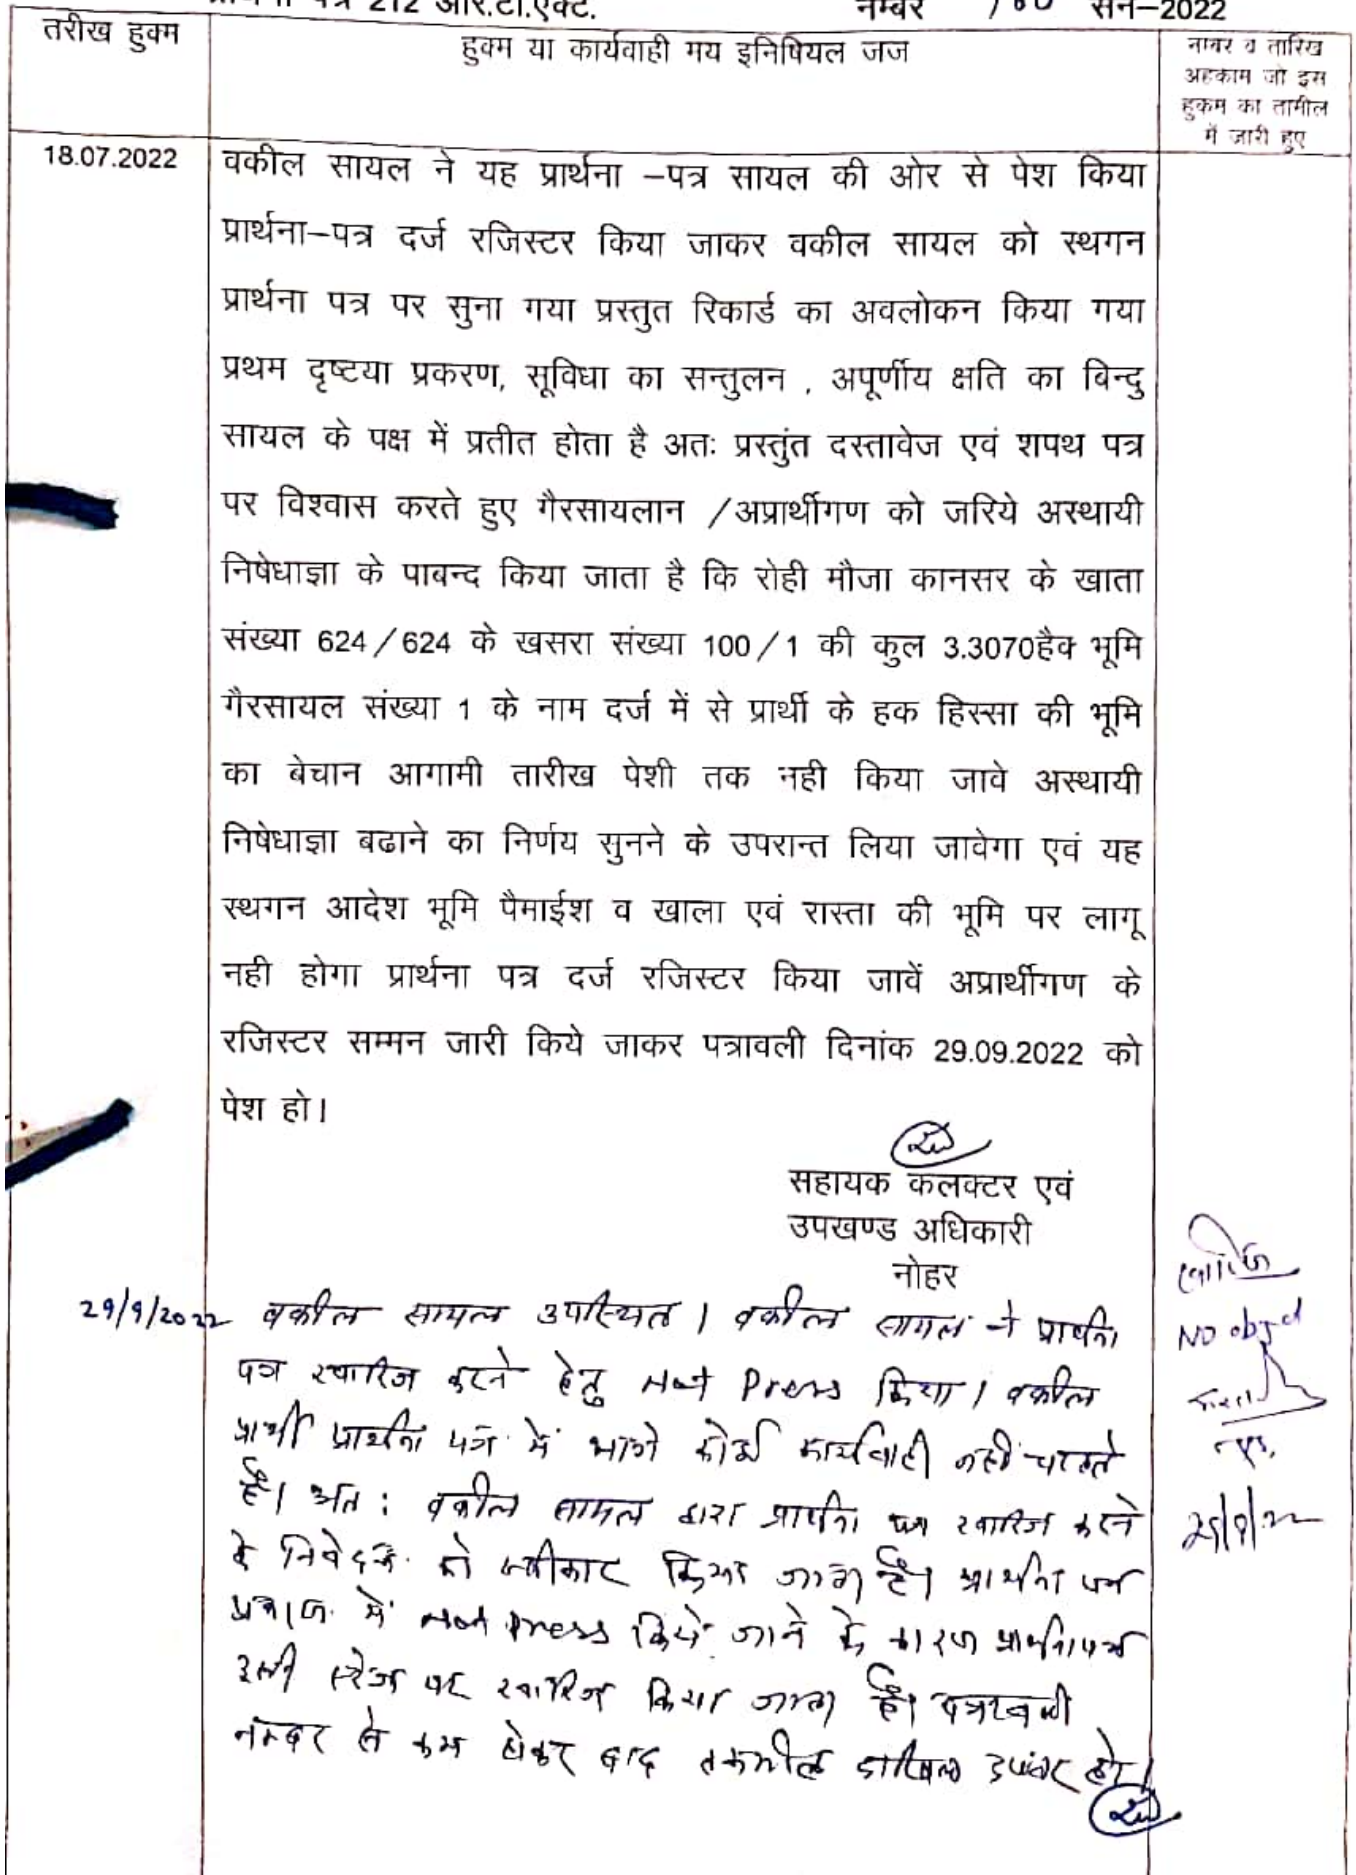 पत्र 212 आर.टी.एक्ट. नम्बर सन–2022
तरीख हुक्म
हुक्म या कार्यवाही मय इनिषियल जज
नम्बर व तारिख
अहकाम जो इस
हुकम का तामील
में जारी हुए
18.07.2022
वकील सायल ने यह प्रार्थना –पत्र सायल की ओर से पेश किया
प्रार्थना–पत्र दर्ज रजिस्टर किया जाकर वकील सायल को स्थगन
प्रार्थना पत्र पर सुना गया प्रस्तुत रिकार्ड का अवलोकन किया गया
प्रथम दृष्टया प्रकरण, सूविधा का सन्तुलन , अपूर्णीय क्षति का बिन्दु
सायल के पक्ष में प्रतीत होता है अतः प्रस्तुंत दस्तावेज एवं शपथ पत्र
पर विश्वास करते हुए गैरसायलान /अप्रार्थीगण को जरिये अस्थायी
निषेधाज्ञा के पाबन्द किया जाता है कि रोही मौजा कानसर के खाता
संख्या 624/624 के खसरा संख्या 100/1 की कुल 3.3070हैक भूमि
गैरसायल संख्या 1 के नाम दर्ज में से प्रार्थी के हक हिस्सा की भूमि
का बेचान आगामी तारीख पेशी तक नही किया जावे अस्थायी
निषेधाज्ञा बढाने का निर्णय सुनने के उपरान्त लिया जावेगा एवं यह
स्थगन आदेश भूमि पैमाईश व खाला एवं रास्ता की भूमि पर लागू
नही होगा प्रार्थना पत्र दर्ज रजिस्टर किया जावें अप्रार्थीगण के
रजिस्टर सम्मन जारी किये जाकर पत्रावली दिनांक 29.09.2022 को
पेश हो।
सहायक कलक्टर एवं
उपखण्ड अधिकारी
नोहर
29/9/2022 वकील सायल उपस्थित। वकील सायल ने प्रार्थना
पत्र खारिज करने हेतु Not Press किया। वकील
प्रार्थी प्रार्थना पत्र में आगे कोई कार्यवाही नहीं चाहते
है। अतः वकील सायल द्वारा प्रार्थना पत्र खारिज करने
के निवेदन को स्वीकार किया जाता है। प्रार्थना पत्र
में Not Press किये जाने के कारण प्रार्थना पत्र
इसी स्टेज पर खारिज किया जाता है। पत्रावली
नम्बर से कम होकर बाद तकमील दाखिल दफ्तर हो।
खारिज
NO objd